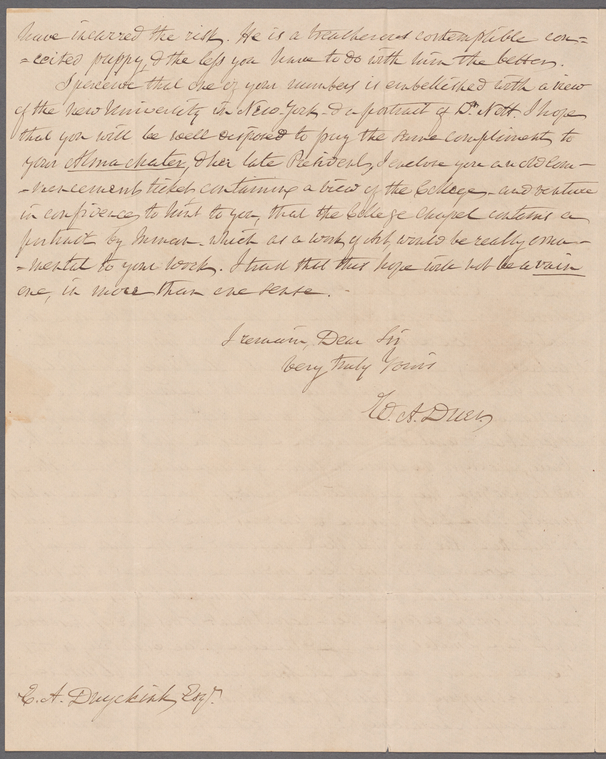 have incurred the risk. He is a treacherous contemptible con=
=ceited puppy, & the less you have to do with him the better.
I perceive that one of your numbers is embellished with a view
of the new University in New-York & a portrait of Dr. Nott. I hope
that you will be well disposed to pay the same compliment to
your Alma Mater, & her late President, I enclose you an old com-
-mencement ticket containing a view of the College, and venture
in confidence to hint to you, that the College chapel contains a
portrait by Inman, which as a work of Art, would be really orna-
-mental to your work. I trust that this hope will not be a vain
one, in more than one sense.
I remain, Dear Sir
Very truly Yours
W. A. Duer
E. A. Duyckink, Esqr.